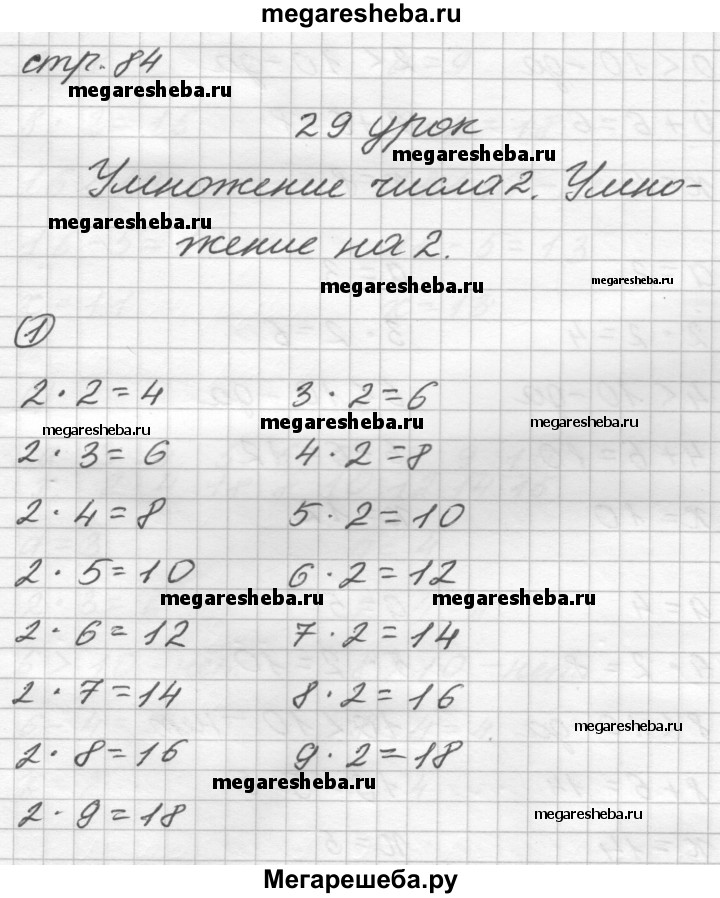 megaresheba.ru
стр. 84
megaresheba.ru
29 урок
megaresheba.ru
Умножение числа 2. Умно-
megaresheba.ru
жение на 2.
megaresheba.ru
megaresheba.ru
1
2 · 2 = 4 3 · 2 = 6
megaresheba.ru megaresheba.ru megaresheba.ru
2 · 3 = 6 4 · 2 = 8
2 · 4 = 8 5 · 2 = 10
2 · 5 = 10 6 · 2 = 12
megaresheba.ru megaresheba.ru
2 · 6 = 12 7 · 2 = 14
2 · 7 = 14 8 · 2 = 16
megaresheba.ru
2 · 8 = 16 9 · 2 = 18
megaresheba.ru
2 · 9 = 18
megaresheba.ru
Мегарешеба.ру